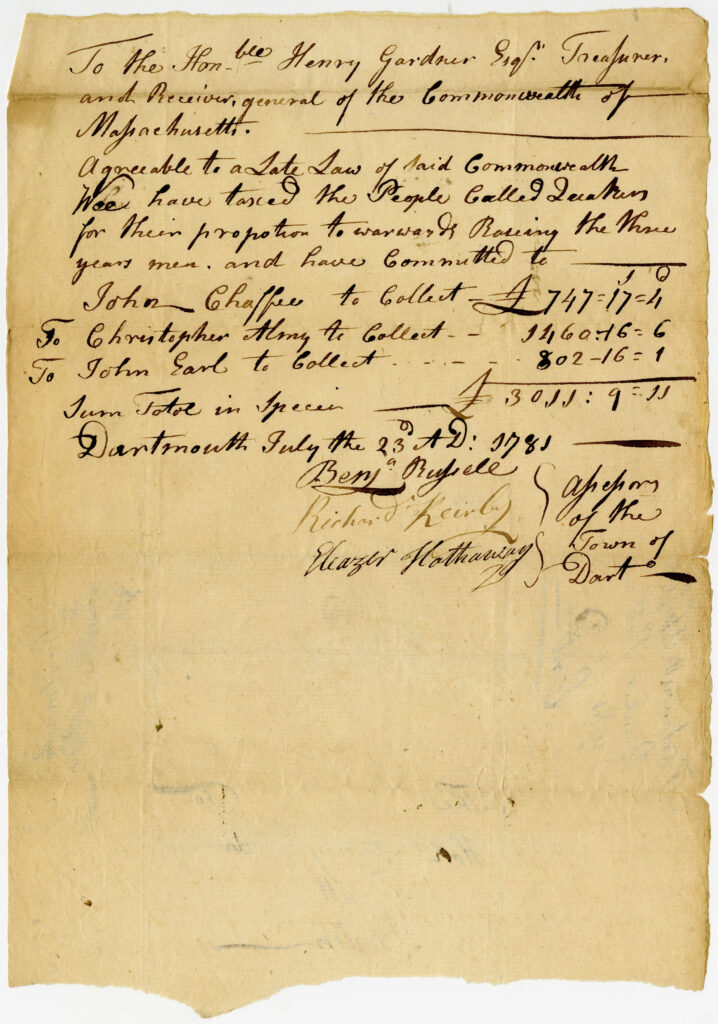 To the Hon-ble Henry Gardner Esqr. Treasurer,
and Receiver, general of the Commonwealth of
Massachusetts.
Agreeable to a Late Law of said Commonwealth
Wee have taxed the People Called Quakers
for their propotion towarwards Raising the three
years men. and have Committed to
s D
John Chaffee to Collect - £ 747=17=4
To Christopher Almy to Collect - - 1460=16=6
To John Earl to Collect - - - - - 802-16=1
Sum Totol in Specia £ 3011:9=11
Dartmouth July the 23D AD: 1781
Benja Russell
Richard Keirby
Eleazer Hathaway
Assessors
of the
Town of
Darto